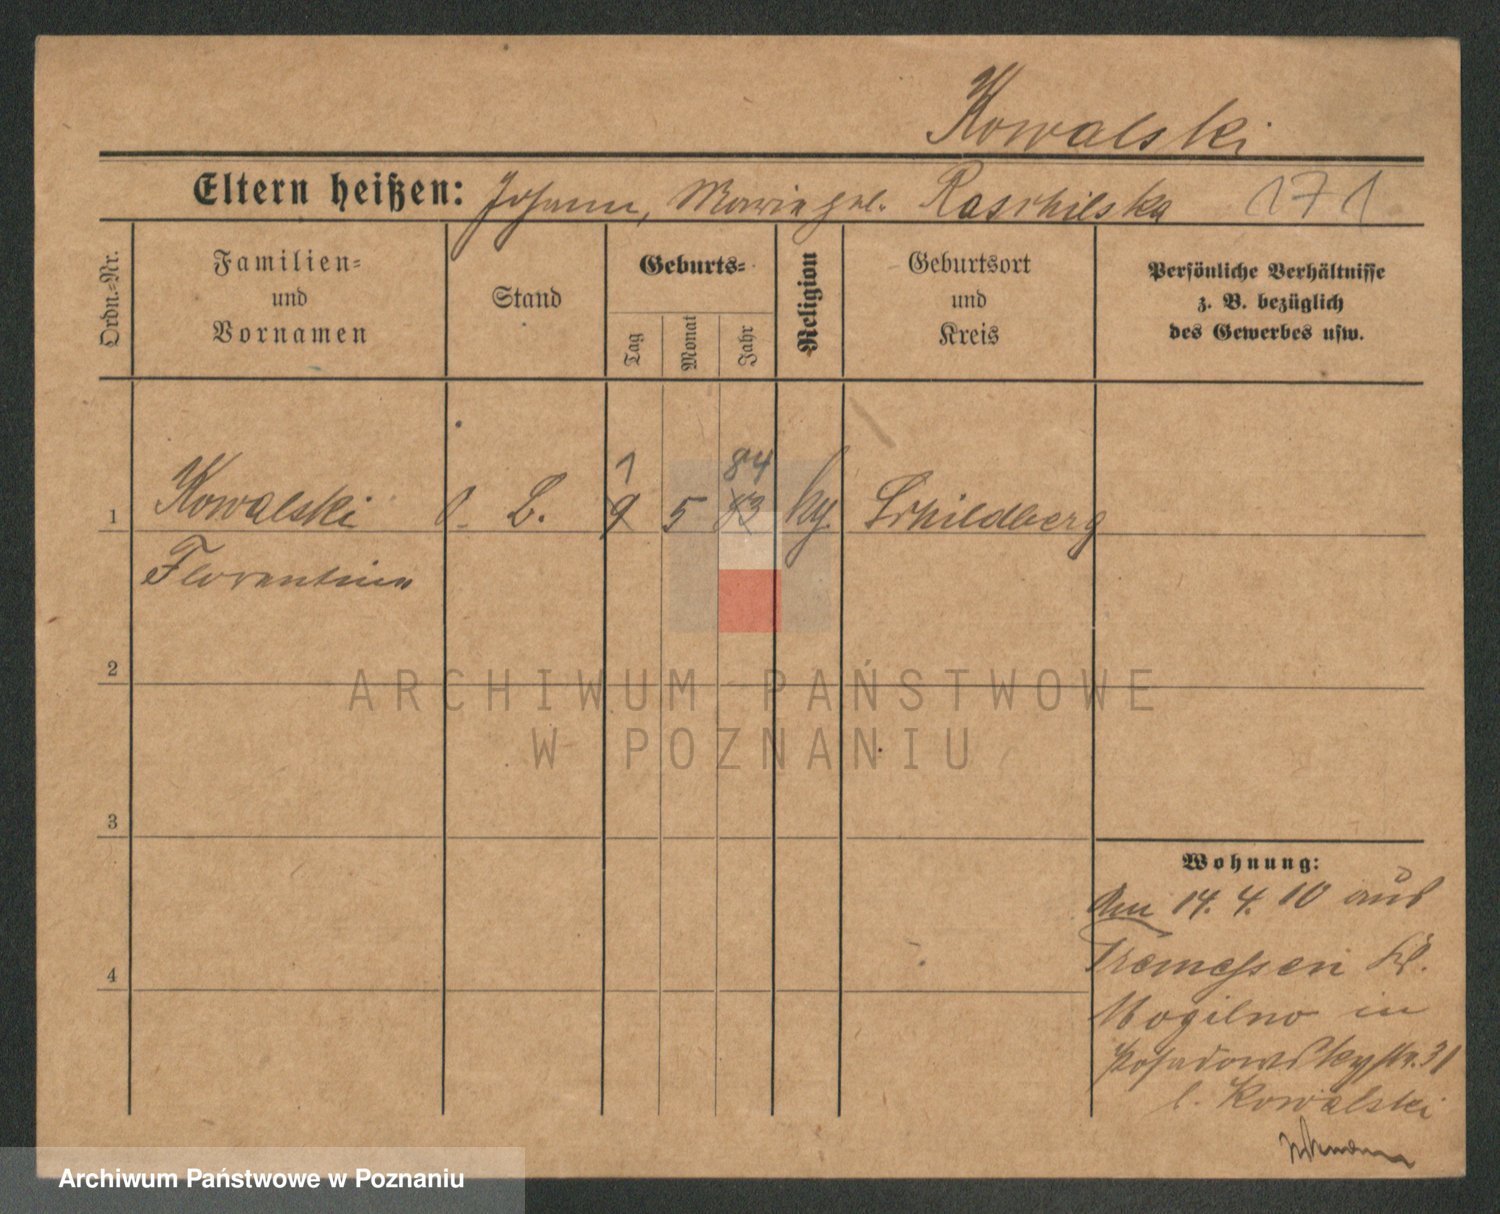 Kowalski
Eltern heißen: Johann, Maria geb. 171
Ordn.-Nr.
Familien-
und
Vornamen
Stand
Geburts-
Tag
Monat
Jahr
Religion
Geburtsort
und
Kreis
Persönliche Verhältnisse
z. B. bezüglich
des Gewerbes usw.
1 84
1 Kowalski o. B. 9 5 83 kg. Schildberg
Florentina
2
3
4
Wohnung:
14. 4. 10 aus
Tremessen Kr.
Mogilno in
Posadowskystr. 31
b. Kowalski
ARCHIWUM PAŃSTWOWE
W POZNANIU
Archiwum Państwowe w Poznaniu